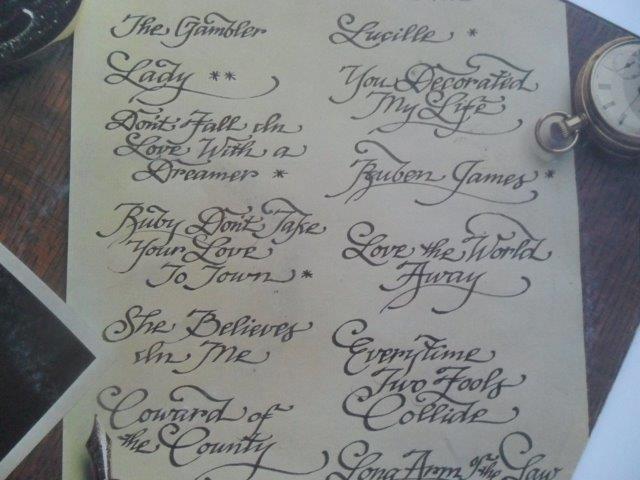 The Gambler
Lady **
Don't Fall In
Love With a
Dreamer *
Ruby Don't Take
Your Love
To Town *
She Believes
In Me
Coward of
the County
Lucille *
You Decorated
My Life
Ruben James *
Love the World
Away
Everytime
Two Fools
Collide
Long Arm of the Law